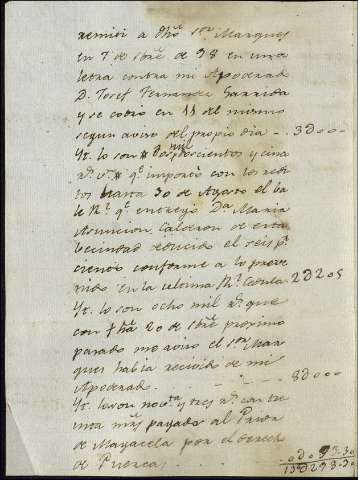 remiti a dho Sor Marques
en 7 de 8bre de 98 en una
letra contra mi Apoderado
D. Josef Fernandez Garrida
y se cobro en 11 del mismo
segun aviso del propio dia - . 3D000
Yt. lo son # dos mil doscientos y cinco
rs. vn # qe importo con los redi
tos hasta 30 de Agosto el ba
le Rl qe entregó Da Maria
Asuncion Calderon de esta
becindad reducido el seis pr
ciento conforme a lo preve
nido en la ultima Rl Cedula 2D205
Yt. lo son ocho mil rs que
con fha 20 de 8bre proximo
pasado me aviso el Sor Mar
ques habia recivido de mi
Apoderado . - . - . - 8D000
Yt. lo son novta y tres rs con tre
inta mrs pagados al Prior
de Magacela por el derecho
de Puercas . . . 0D093..30
13D298..30